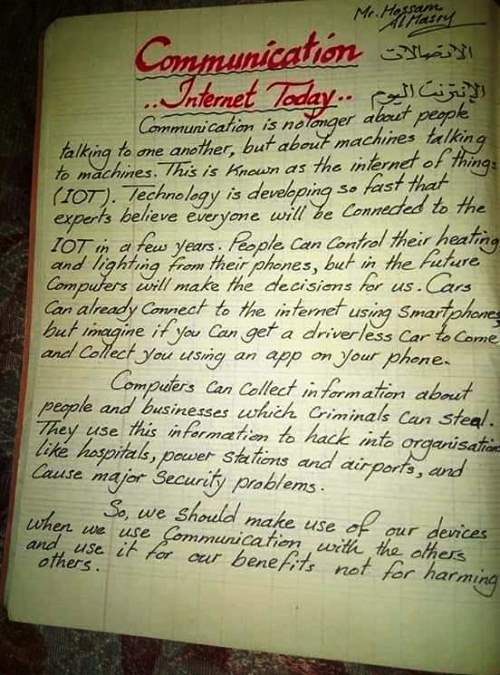 Mr. Hossam
Al Masry
Communication الاتصالات
..Internet Today.. الإنترنت اليوم
Communication is no longer about people
talking to one another, but about machines talking
to machines. This is Known as the internet of things
(IOT). Technology is developing so fast that
experts believe everyone will be Connected to the
IOT in a few years. People Can Control their heating
and lighting from their phones, but in the future
Computers will make the decisions for us. Cars
Can already Connect to the internet using Smartphones
but imagine if you Can get a driverless Car to Come
and Collect you using an app on your phone.
Computers Can Collect information about
people and businesses which Criminals Can Steal.
They use this information to hack into organisation
like hospitals, power Stations and airports, and
Cause major Security problems.
So, we should make use of our devices
when we use Communication with the others
and use it for our benefits not for harming
others.